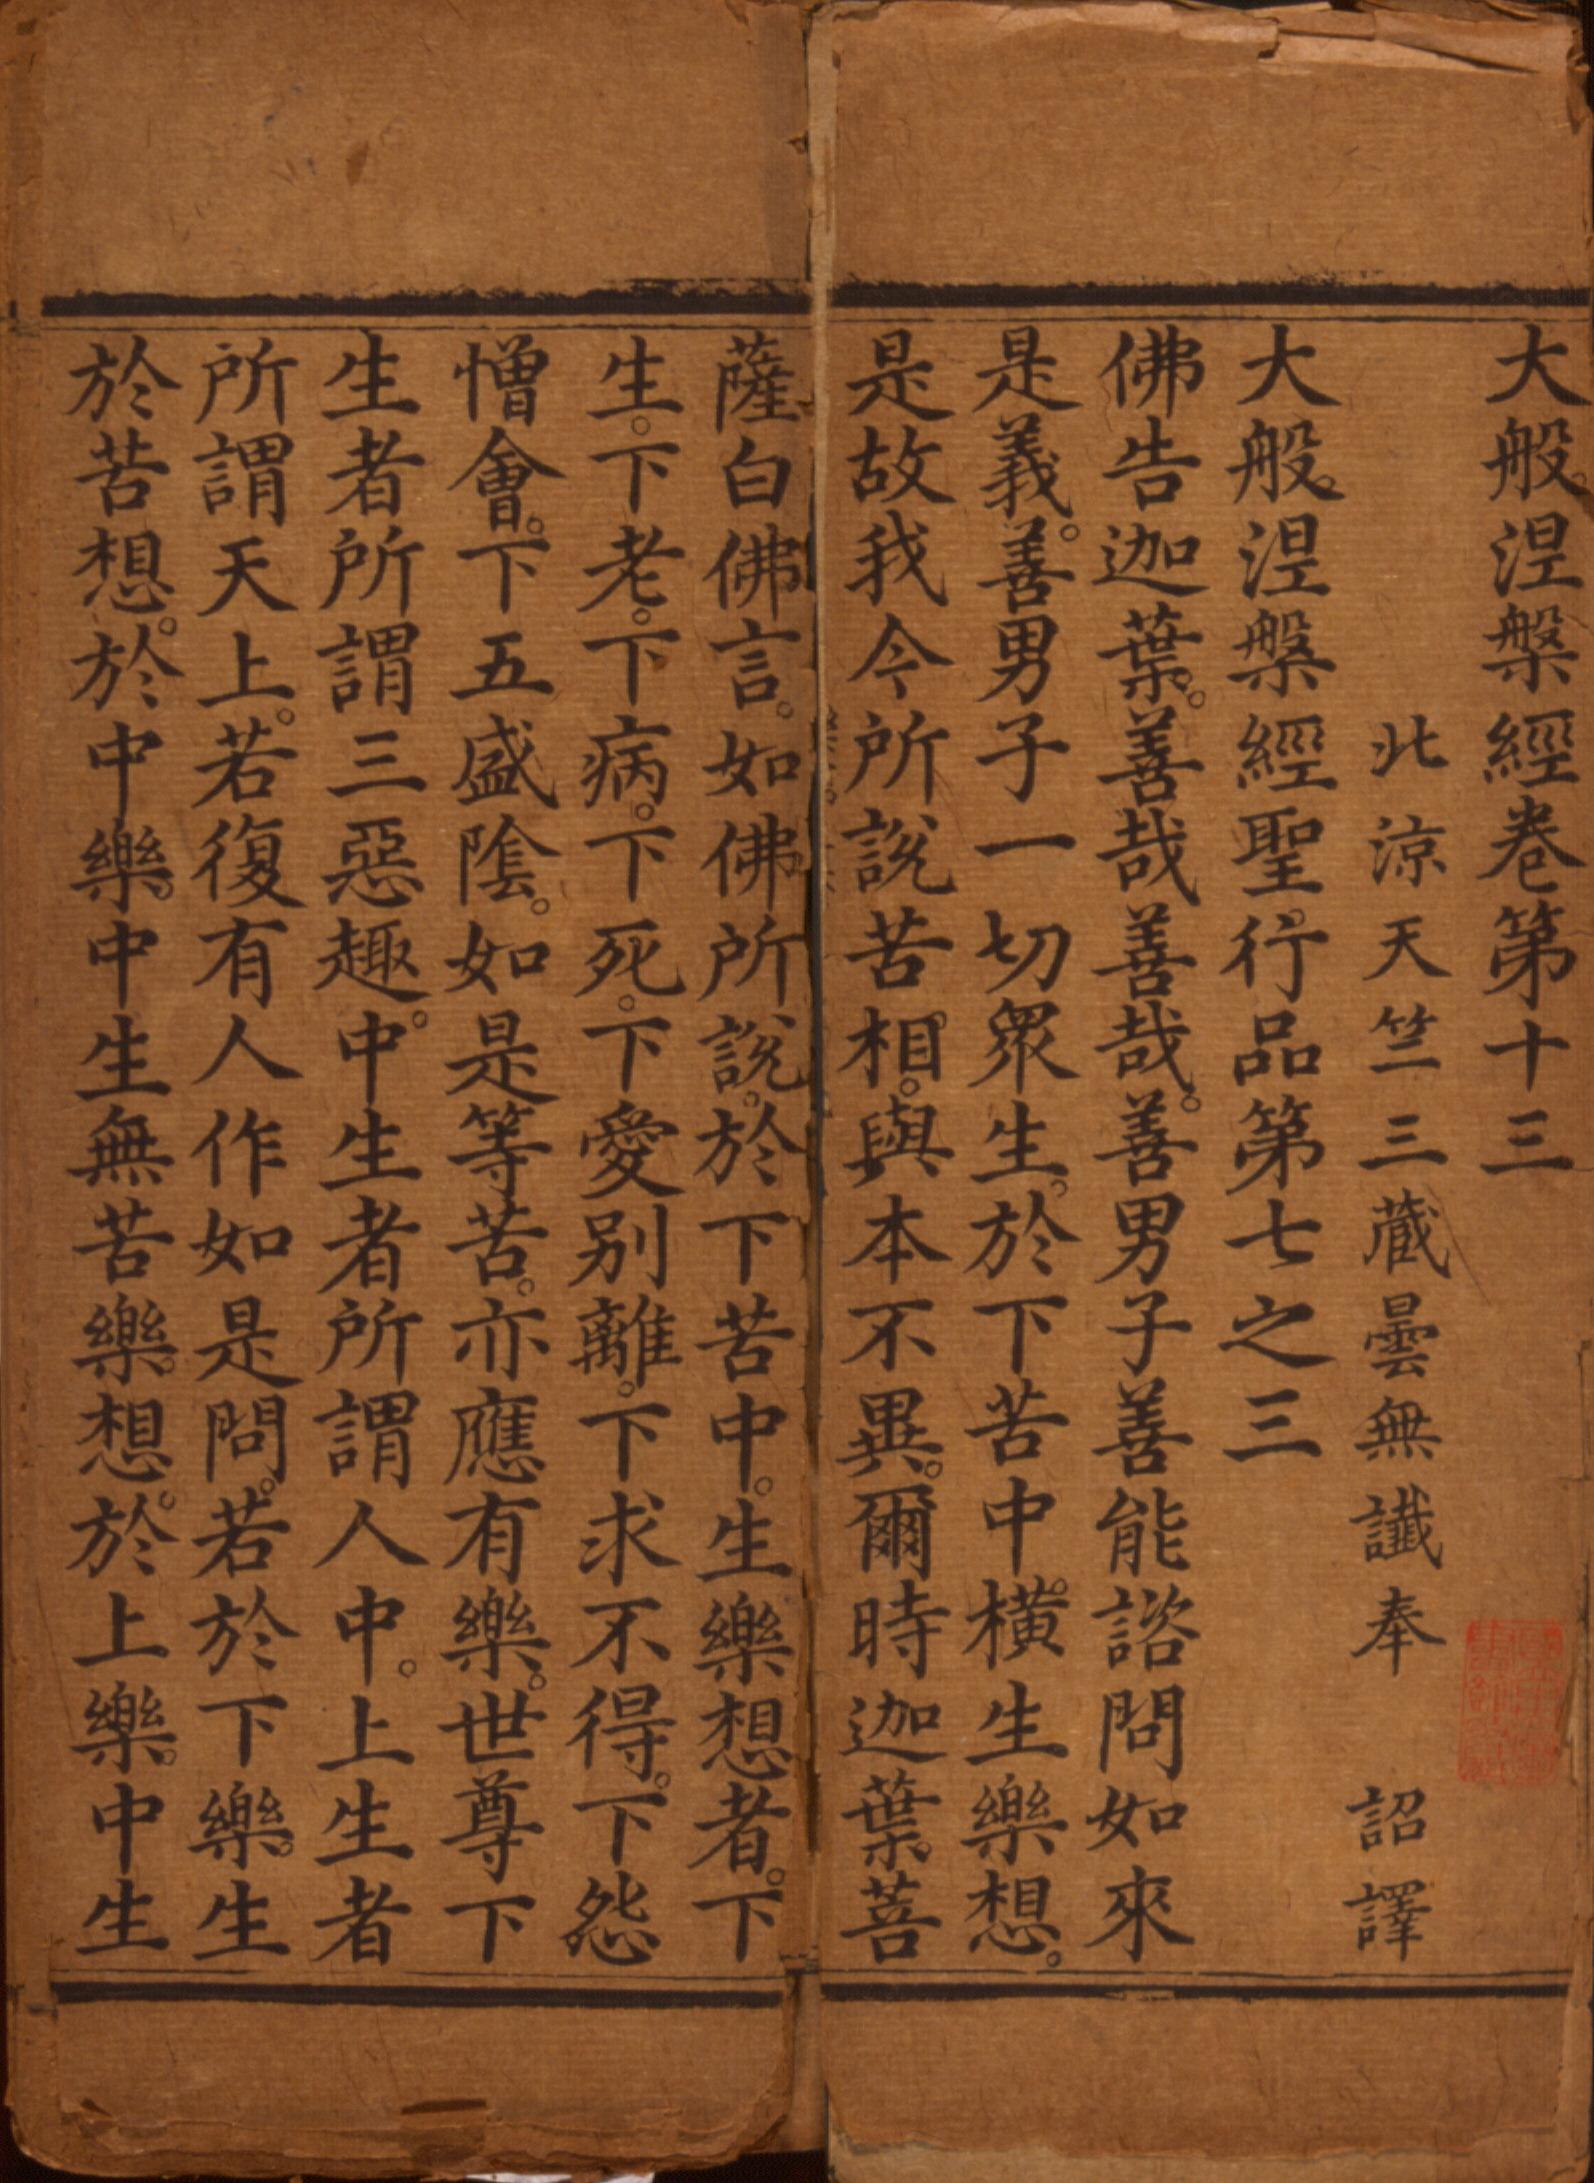 大般涅槃經卷第十三
北涼天竺三蔵曇無讖奉 詔譯
大般涅槃經聖行品第七之三
佛告迦葉。善哉善哉。善男子善能諮問如來
是義。善男子一切眾生。於下苦中。橫生樂想。
是故我今所說苦相。與本不異。爾時迦葉。菩
薩白佛言。如佛所說。於下苦中。生樂想者。下
生。下老。下病。下死。下愛別離。下求不得。下怨
憎會。下五盛陰。如是等苦。亦應有樂。世尊下
生者所謂三惡趣。中生者所謂人中。上生者
所謂天上。若復有人作如是問。若於下樂。生
於苦想。於中樂。中生無苦樂。想。於上樂。中生